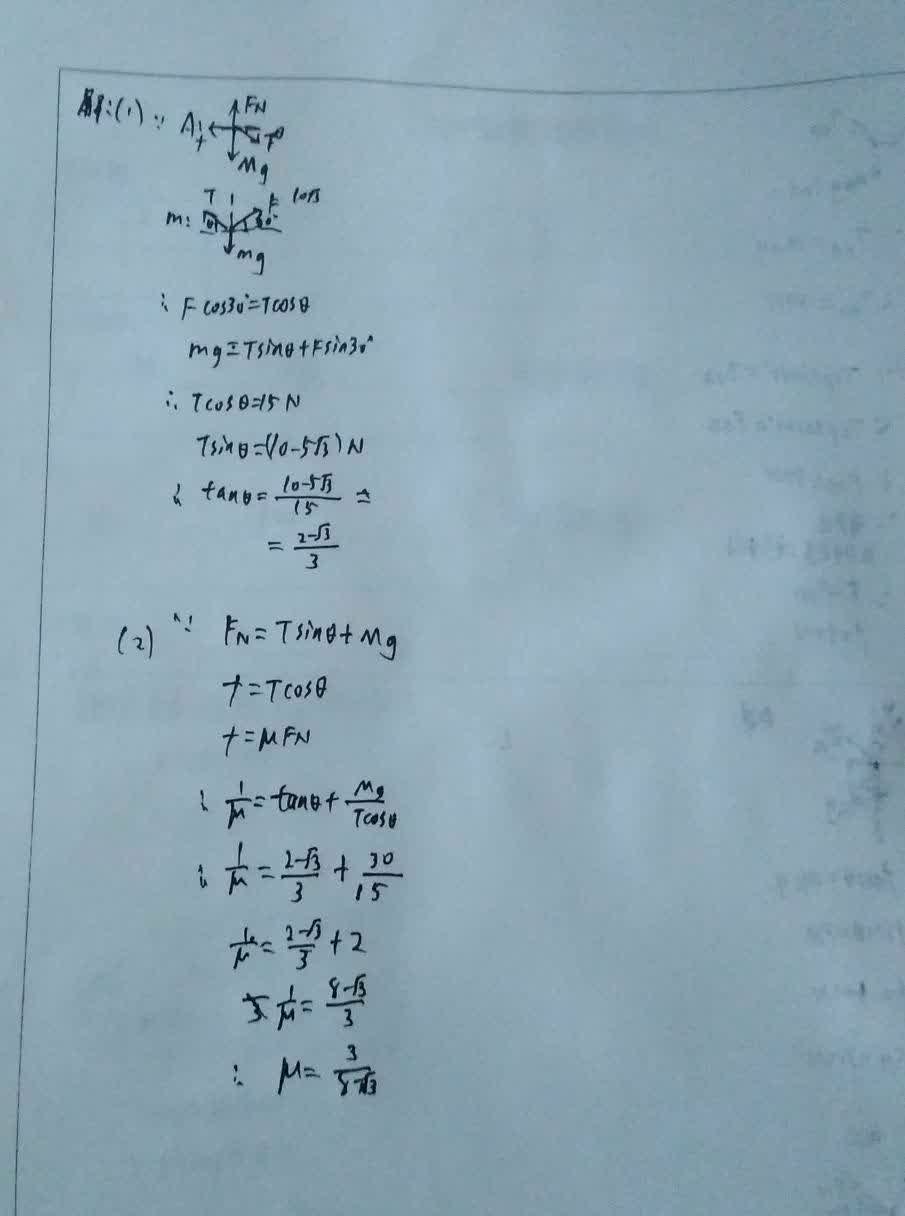 解:(1) ∵ A: FN f T θ Mg
m: T F 10√3 θ 30° mg
∴ Fcos30°=Tcosθ
mg=Tsinθ+Fsin30°
∴ Tcosθ=15N
Tsinθ=(10-5√3)N
∴ tanθ=\frac{10-5√3}{15} =
=\frac{2-√3}{3}
(2) ∵ FN=Tsinθ+Mg
f=Tcosθ
f=μFN
∴ \frac{1}{μ}=tanθ+\frac{Mg}{Tcosθ}
∴ \frac{1}{μ}=\frac{2-√3}{3}+\frac{30}{15}
\frac{1}{μ}=\frac{2-√3}{3}+2
\frac{1}{μ}=\frac{8-√3}{3}
∴ μ=\frac{3}{8-√3}